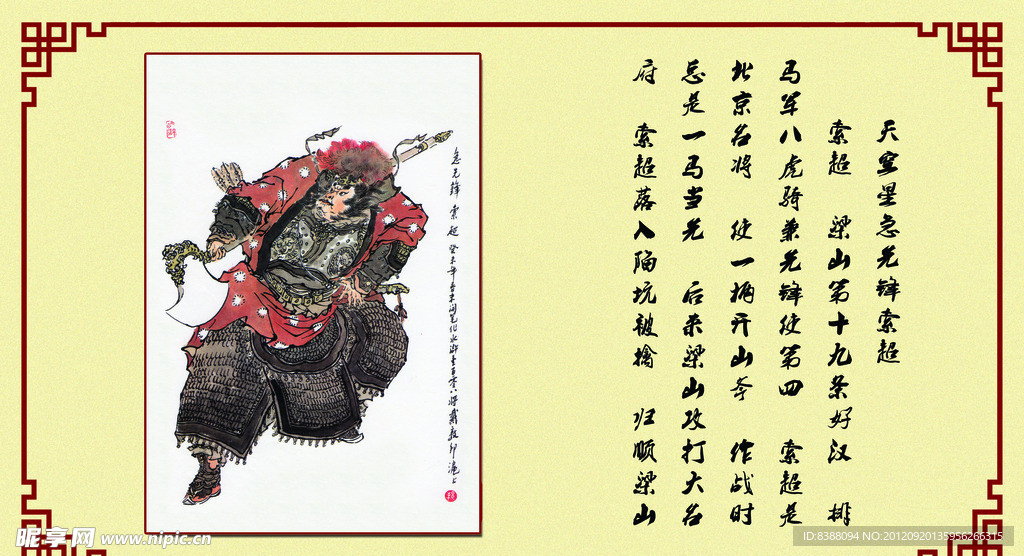 天空星急先锋索超
索超 梁山第十九条好汉 排
马军八虎骑兼先锋使第四 索超是
北京名将 使一柄开山斧 作战时
总是一马当先 后来梁山攻打大名
府 索超落入陷坑被擒 归顺梁山
急先锋 索超 癸未年 水浒壹百零八将 戴敦邦 沪上
昵享网 www.nipic.cn
ID:8388094 NO:20120920135956266315